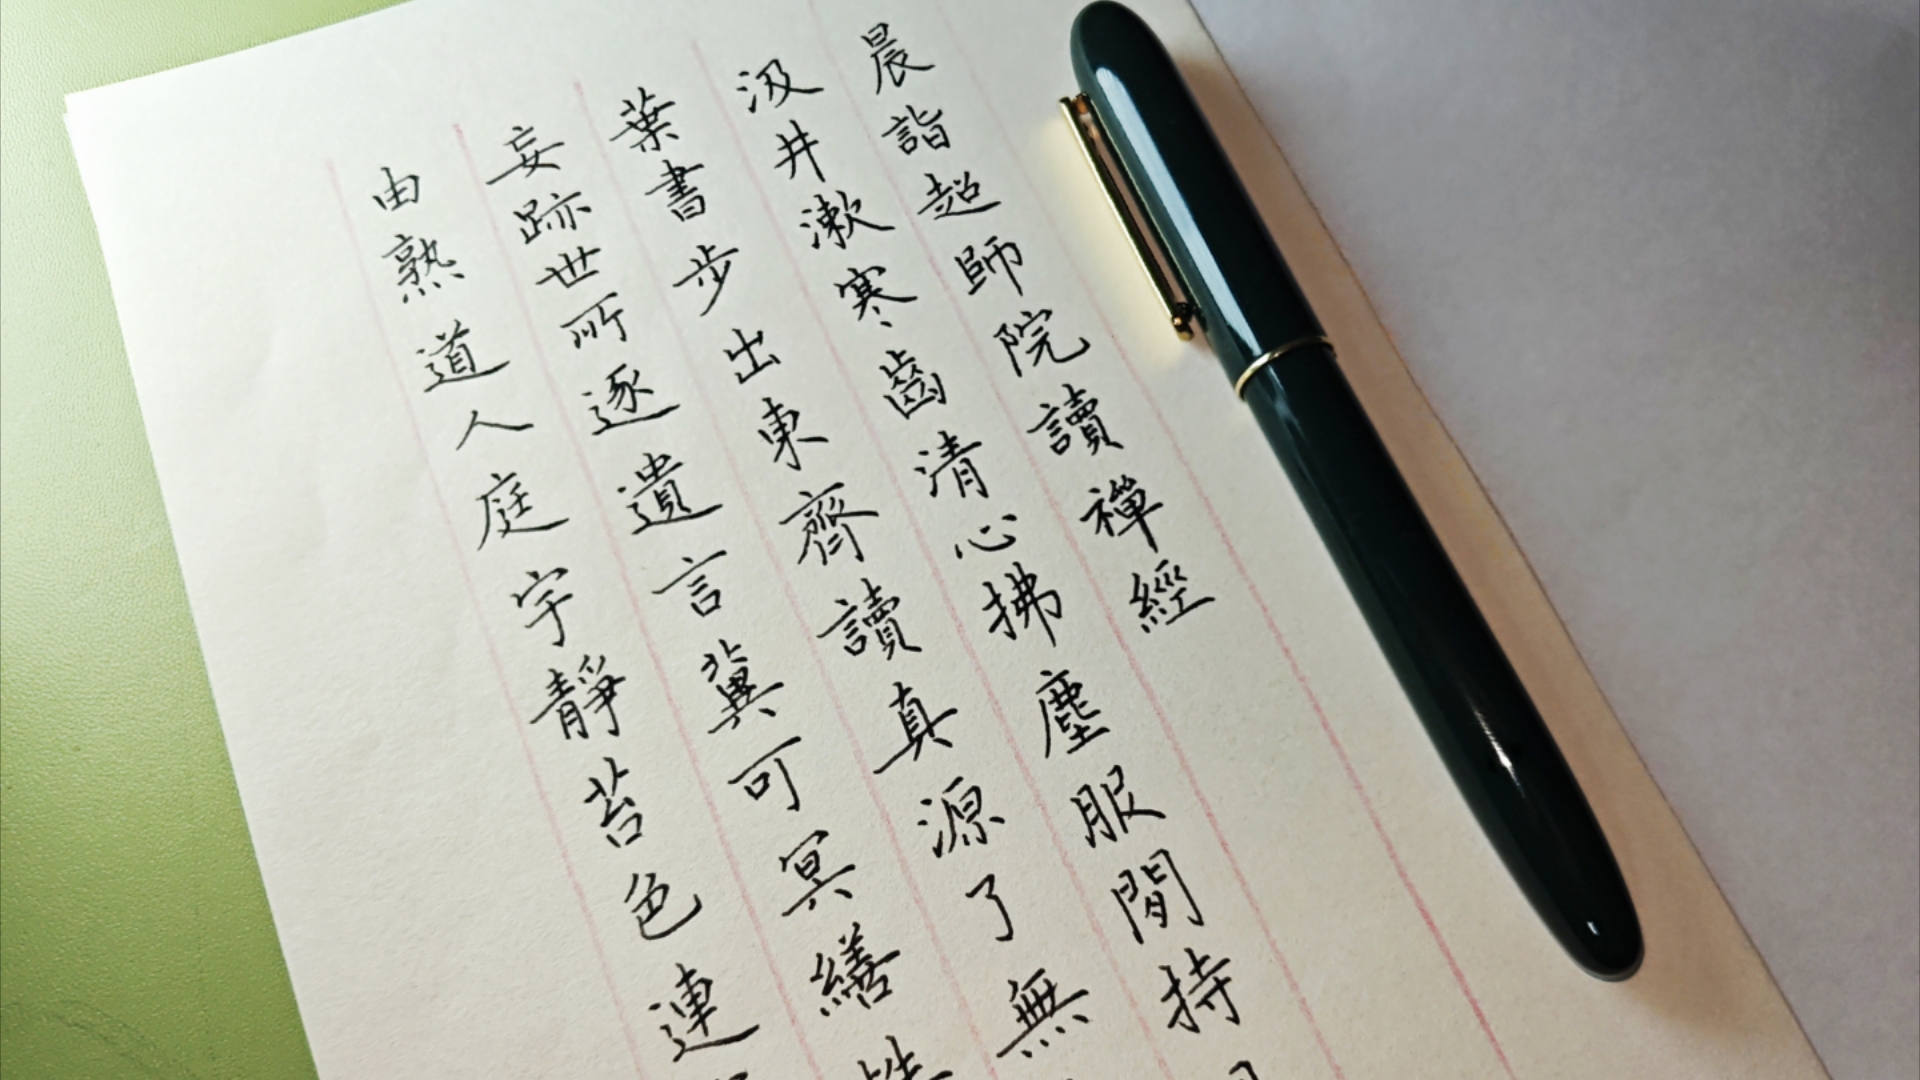 晨詣超師院讀禪經
汲井漱寒齒清心拂塵服閒持
葉書步出東齊讀真源了無
妄跡世所逐遺言冀可冥繕性
由熟道人庭宇靜苔色連